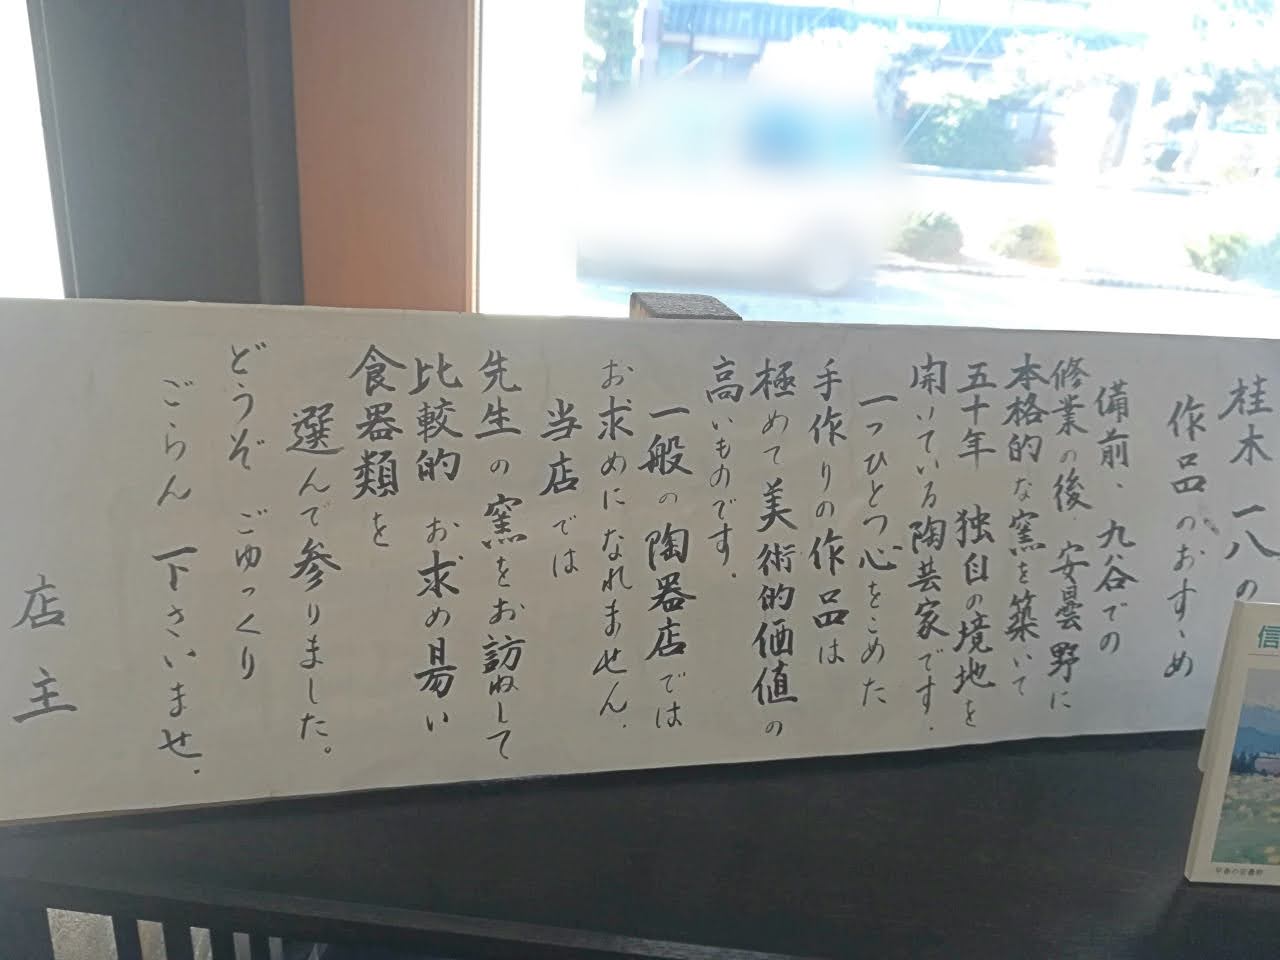 桂木一八の
作品のおすゝめ
備前、九谷での
修業の後、安曇野に
本格的な窯を築いて
五十年 独自の境地を
開いている陶芸家です。
一つひとつ心をこめた
手作りの作品は
極めて美術的価値の
高いものです。
一般の陶器店では
お求めになれません。
当店では
先生の窯をお訪ねして
比較的お求め易い
食器類を
選んで参りました。
どうぞ ごゆっくり
ごらん下さいませ。
店主
信
早春の安曇野